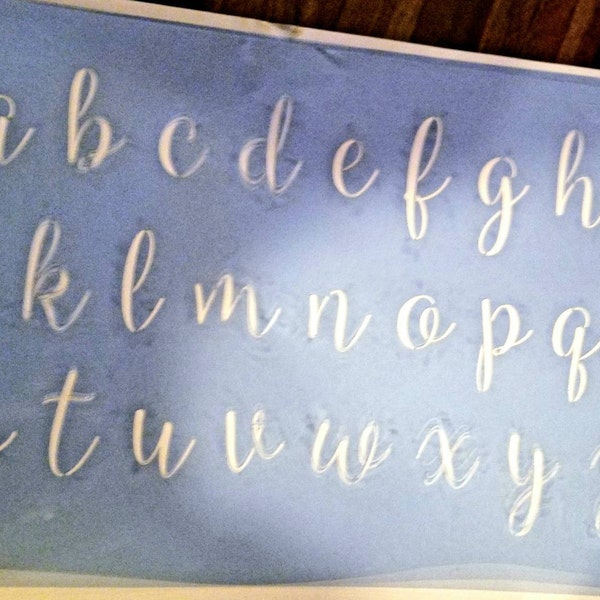 a b c d e f g h
k l m n o p q
t u v w x y